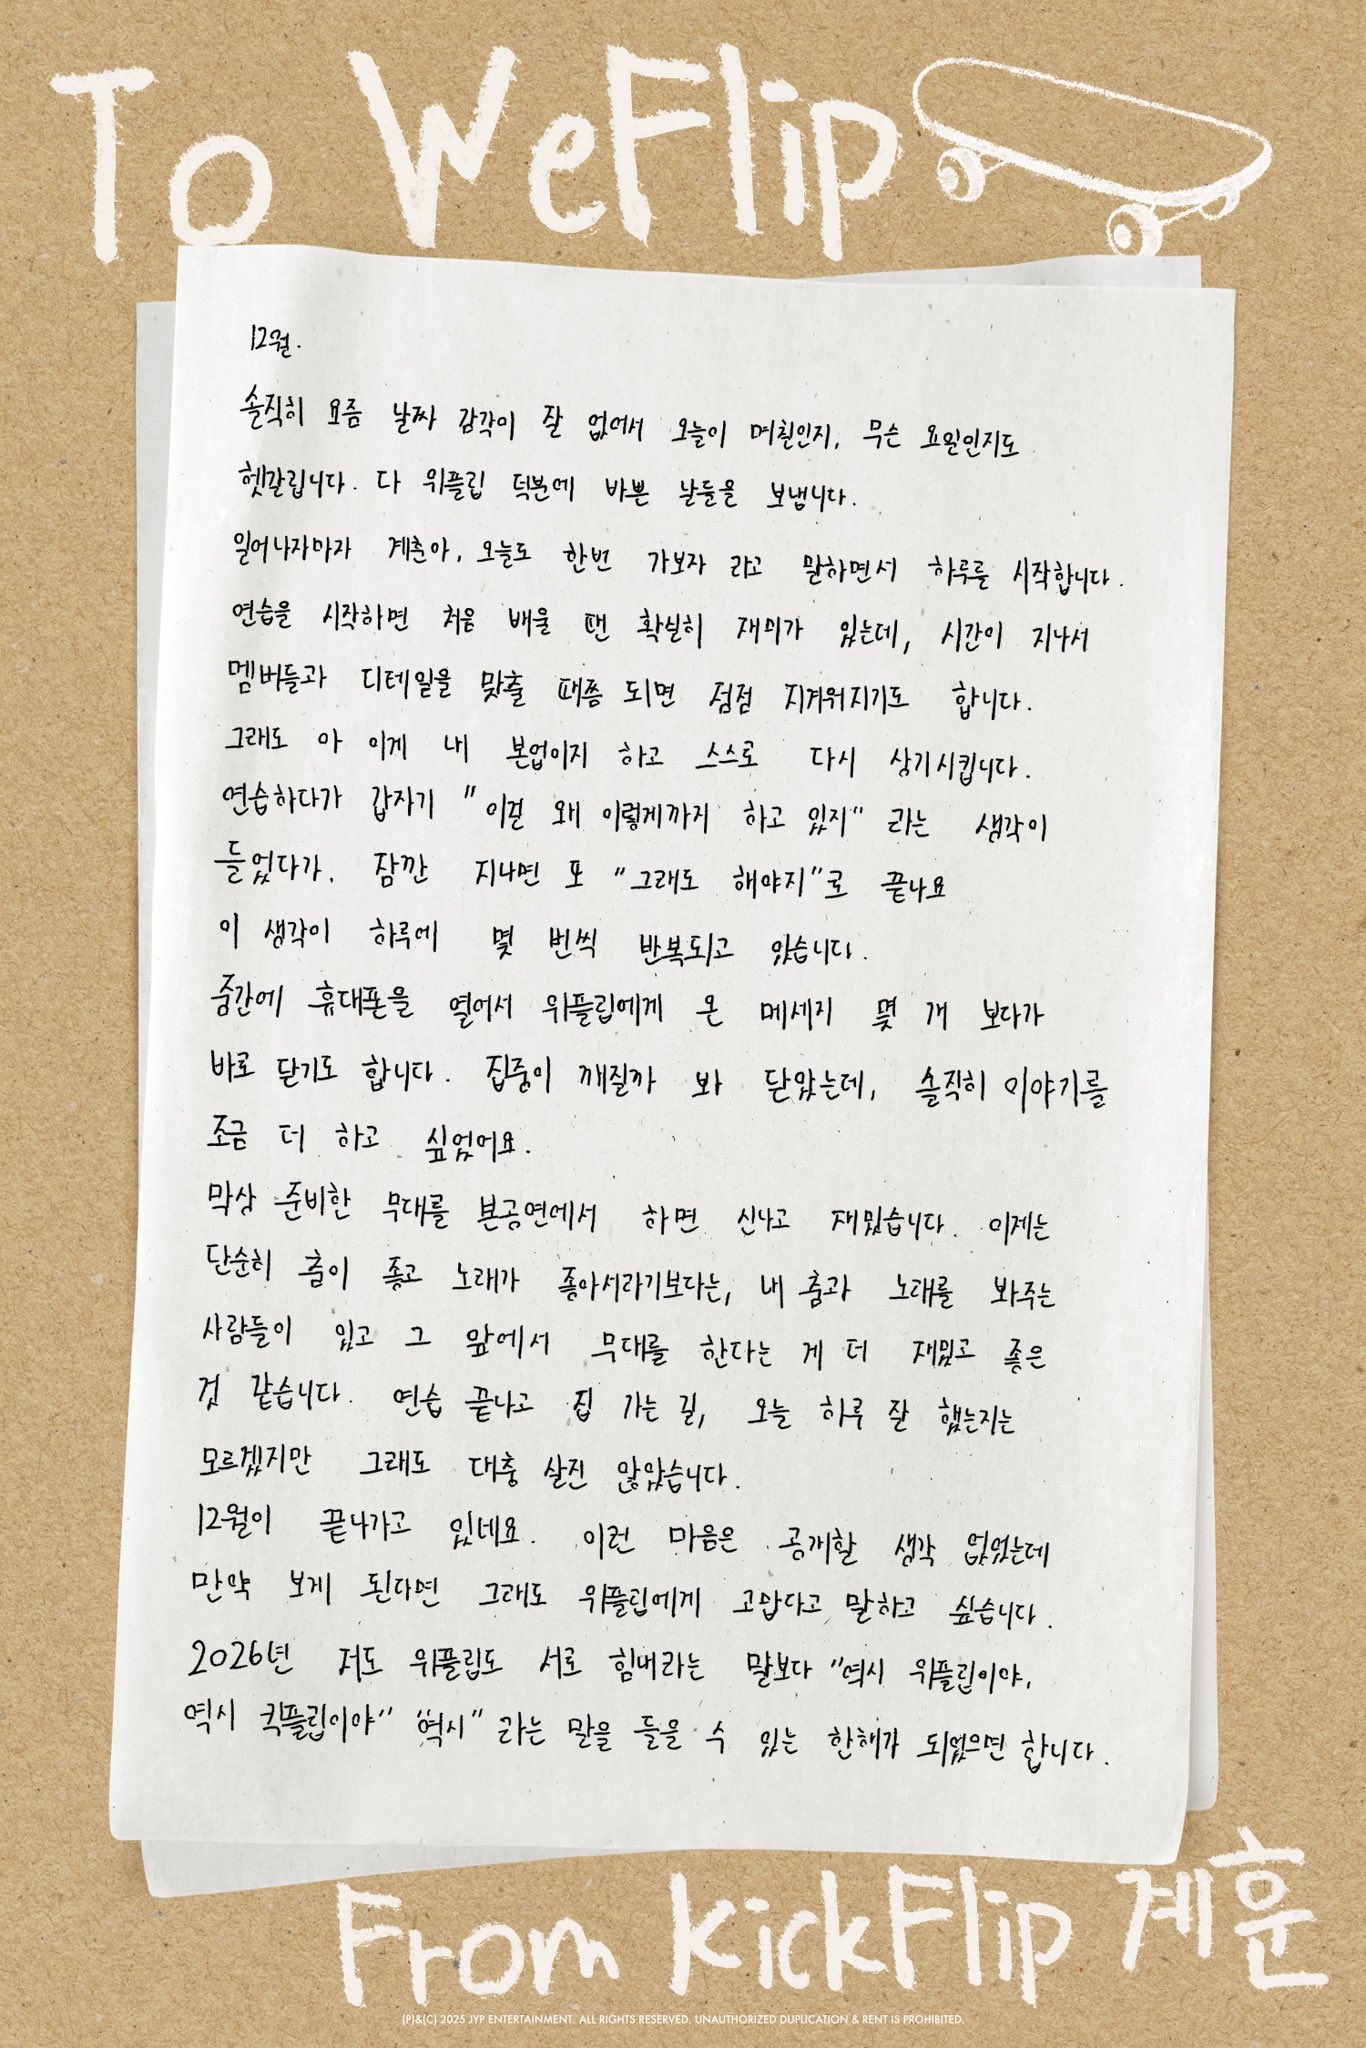 To WeFlip
12월.
솔직히 요즘 날짜 감각이 잘 없어서 오늘이 며칠인지, 무슨 요일인지도
헷갈립니다. 다 위플립 덕분에 바쁜 날들을 보냅니다.
일어나자마자 계훈아, 오늘도 한번 가보자 라고 말하면서 하루를 시작합니다.
연습을 시작하면 처음 배울 땐 확실히 재미가 있는데, 시간이 지나서
멤버들과 디테일을 맞출 때쯤 되면 점점 지겨워지기도 합니다.
그래도 아 이게 내 본업이지 하고 스스로 다시 상기시킵니다.
연습하다가 갑자기 "이걸 왜 이렇게까지 하고 있지" 라는 생각이
들었다가, 잠깐 지나면 또 "그래도 해야지"로 끝나요
이 생각이 하루에 몇 번씩 반복되고 있습니다.
중간에 휴대폰을 열어서 위플립에게 온 메세지 몇 개 보다가
바로 닫기도 합니다. 집중이 깨질까 봐 닫았는데, 솔직히 이야기를
조금 더 하고 싶었어요.
막상 준비한 무대를 본공연에서 하면 신나고 재밌습니다. 이제는
단순히 춤이 좋고 노래가 좋아서라기보다는, 내 춤과 노래를 봐주는
사람들이 있고 그 앞에서 무대를 한다는 게 더 재밌고 좋은
것 같습니다. 연습 끝나고 집 가는 길, 오늘 하루 잘 했는지는
모르겠지만 그래도 대충 살진 않았습니다.
12월이 끝나가고 있네요. 이런 마음은 공개할 생각 없었는데
만약 보게 된다면 그래도 위플립에게 고맙다고 말하고 싶습니다.
2026년 저도 위플립도 서로 힘내라는 말보다 "역시 위플립이야,
역시 킥플립이야" "역시" 라는 말을 들을 수 있는 한해가 되었으면 합니다.
From KickFlip 계훈
(P)&(C) 2025 JYP ENTERTAINMENT. ALL RIGHTS RESERVED. UNAUTHORIZED DUPLICATION & RENT IS PROHIBITED.